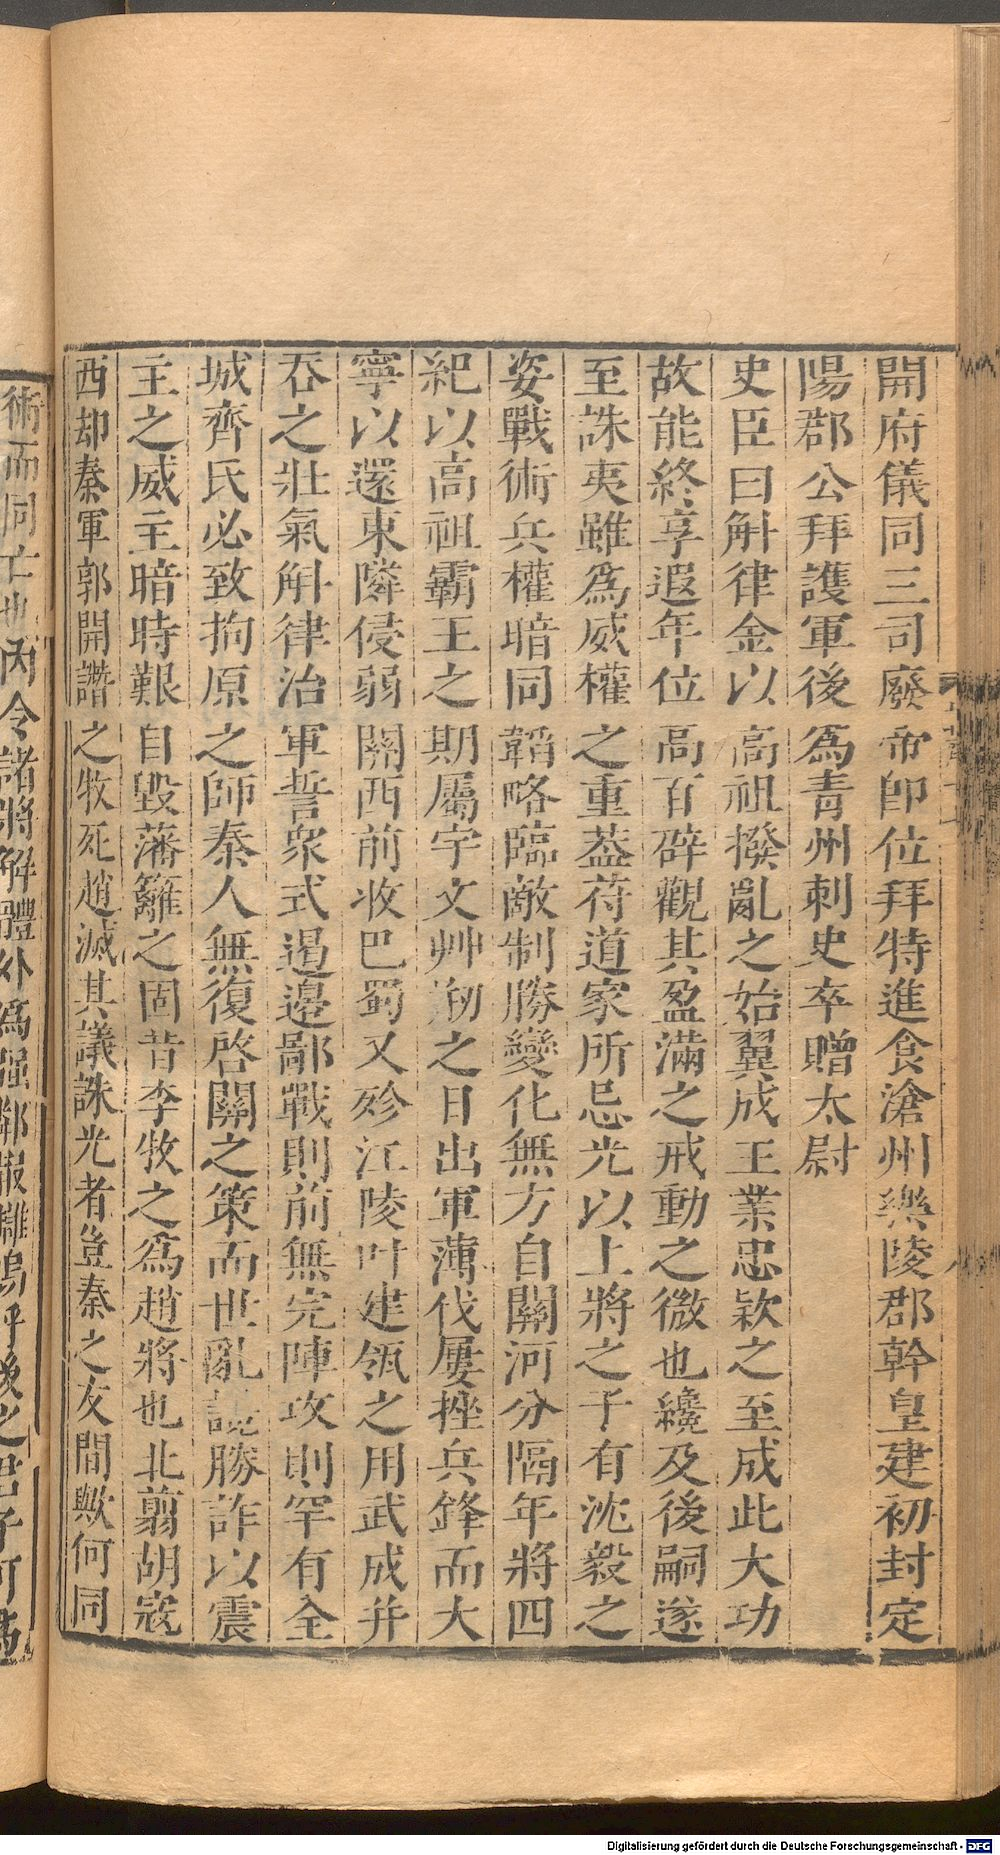 開府儀同三司廢帝即位拜特進食滄州樂陵郡幹皇建初封定
陽郡公拜護軍後爲青州刺史卒贈太尉
史臣曰斛律金以高祖撥亂之始翼成王業忠欵之至成此大功
故能終享遐年位高百辟觀其盈滿之戒動之微也纔及後嗣遂
至誅夷雖爲威權之重葢苻道家所忌光以上將之子有沈毅之
姿戰術兵權暗同韜略臨敵制勝變化無方自關河分隔年將四
紀以高祖霸王之期屬宇文艸刱之日出軍薄伐屢挫兵鋒而大
寧以還東隣侵弱關西前收巴蜀又殄江陵叶建瓴之用武成并
吞之壯氣斛律治軍誓衆式遏邊鄙戰則前無完陣攻則罕有全
城齊氏必致拘原之師秦人無復啓關之策而世亂讒勝詐以震
主之威主暗時艱自毀藩籬之固昔李牧之爲趙將也北翦胡寇
西却秦軍郭開譖之牧死趙滅其議誅光者豈秦之友間歟何同
術而同亡也内令諸將解體外爲强鄰報讎嗚呼後之君子可爲
Digitalisierung gefördert durch die Deutsche Forschungsgemeinschaft - DFG